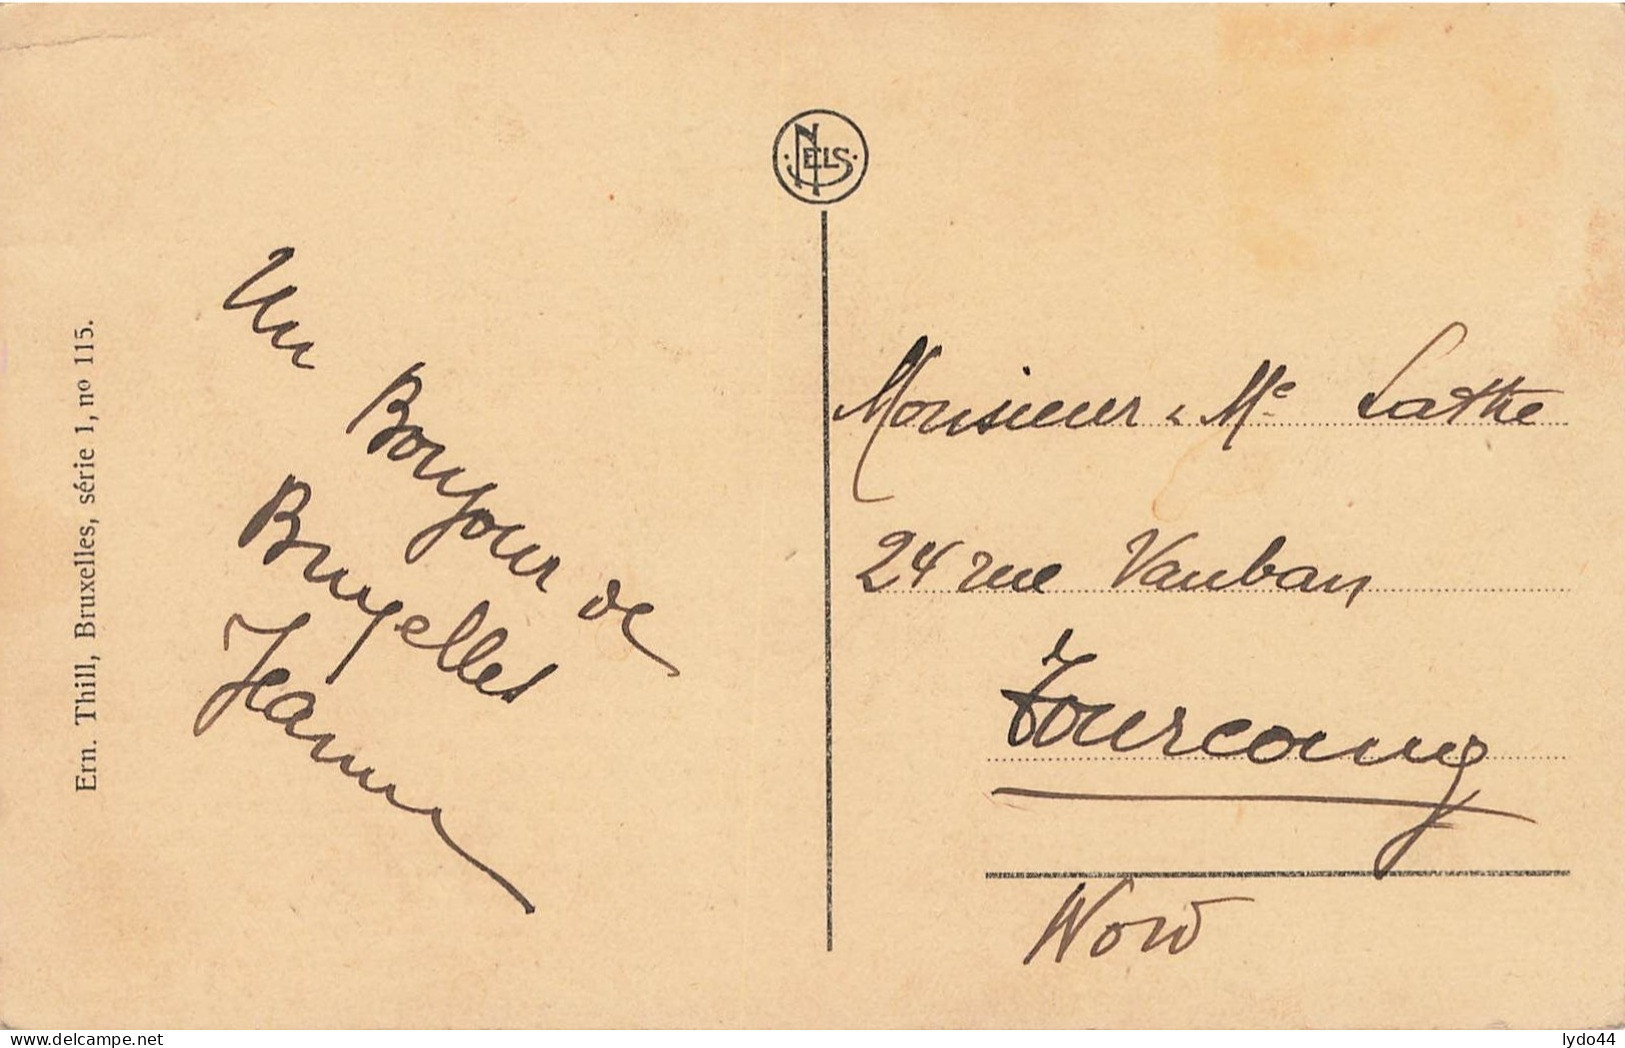 Ern. Thill, Bruxelles, série 1, nº 115.
NELS
Un Bonjour de
Bruxelles
Jeanne
Monsieur & Me Lathe
24 rue Vauban
Tourcoing
Nord
www.delcampe.net
lydo44